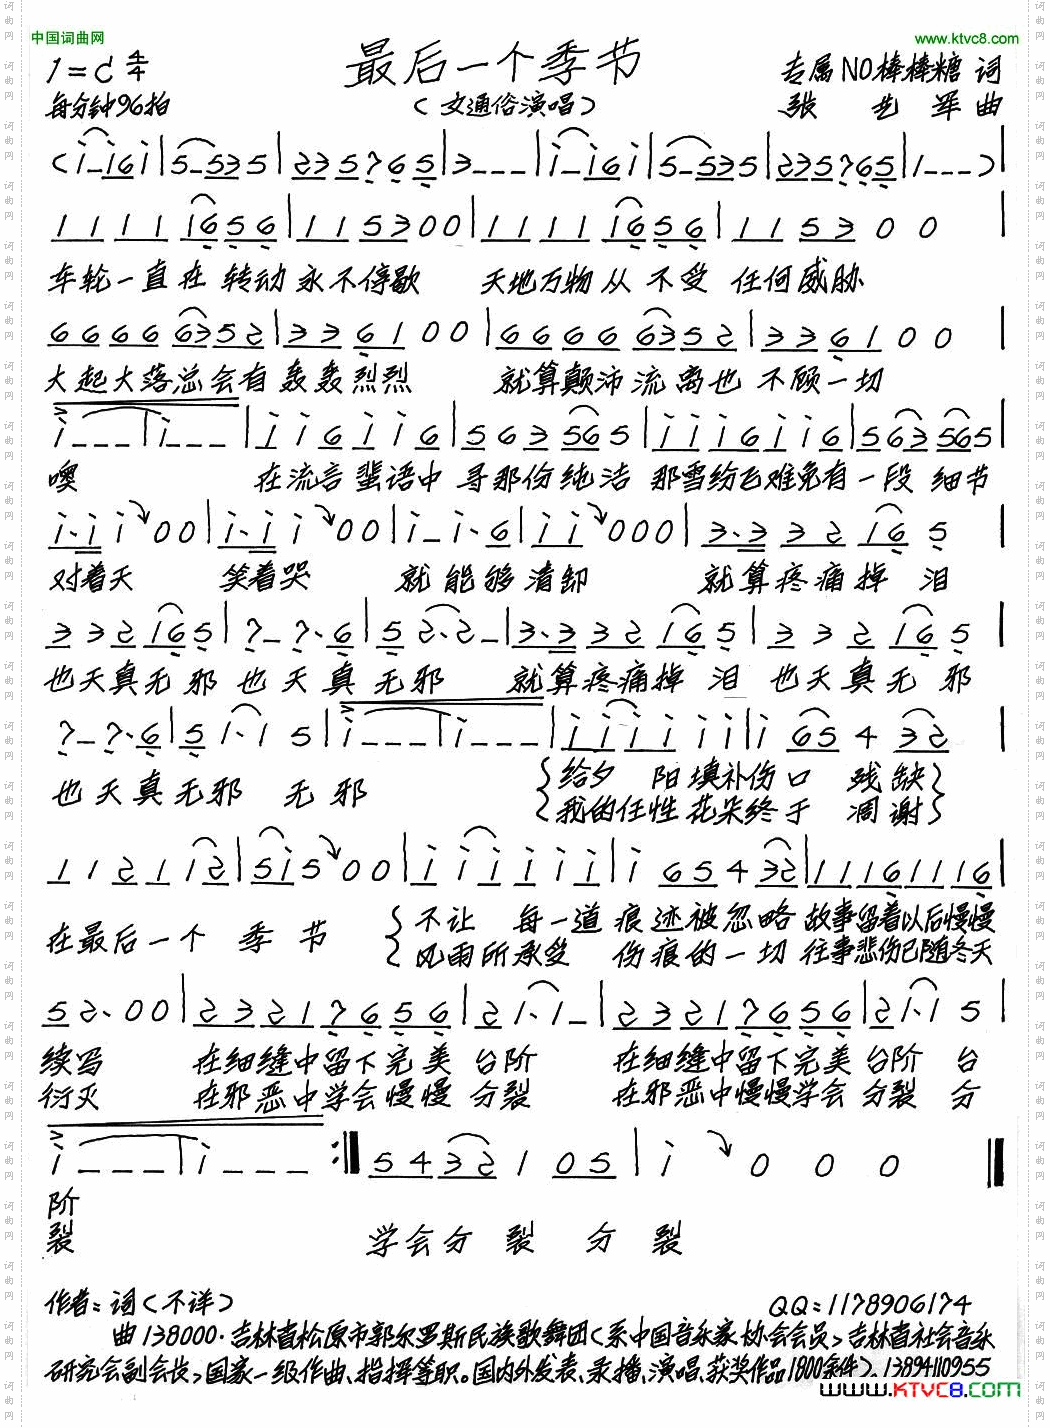 中国词曲网
www.ktvc8.com
最后一个季节
1=C 4/4
专属NO棒棒糖 词
每分钟96拍
(文通俗演唱)
张艺军 曲
(i-i6i|5-535|235765|3---|i-i6i|5-535|235765|1---)|
1111 1656|115300|1111 1656|1153 0 0|
车轮一直在 转动 永不停歇 天地万物从 不受 任何威胁
6666 6352|336100|6666 6352|336100|
大起大落总会有轰轰烈烈 就算颠沛流离也 不顾一切
i---|i---|ii6ii6|563 565|iii6ii6|563565|
噢 在流言蜚语中 寻那份纯洁 那雪纷飞难免有一段 细节
i·ii00|i·ii00|i-i·6|ii000|3·332 16 5
对着天 笑着哭 就能够清卸 就算疼痛掉 泪
332165|7-7·6|52·2-|3·332165|332 165|
也天真无邪 也天真 无邪 就算疼痛掉 泪 也天真无 邪
7-7·6|51·15|i---|i---|iiiiiii|i 65 4 32|
也天真无邪 无邪
给夕 阳填补伤口 残缺
我的任性花朵终于 凋谢
112112|5i500|iiiiii|i 65432|11161116|
在最后一个 季 节
不让 每一道痕迹被忽略 故事留着以后慢慢
风雨所承受 伤痕的一切 往事悲伤已随冬天
52·00|23217656|21·1-|23217656|21·1 5|
续写 在细缝中留下完美 台阶 在细缝中留下完美台阶 台
衍灭 在邪恶中学会慢慢 分裂 在邪恶中慢慢学会 分裂 分
i---|i---:‖5432 1 05|i 0 0 0‖
阶
裂 学会分 裂 分 裂
作者:词(不详)
QQ:1178906174
曲138000·吉林省松原市郭尔罗斯民族歌舞团(系中国音乐家协会会员>吉林省社会音乐
研究会副会长>国家一级作曲、指挥等职。国内外发表、录播、演唱、获奖作品1800余件). 13894110955
www.KTVC8.COM